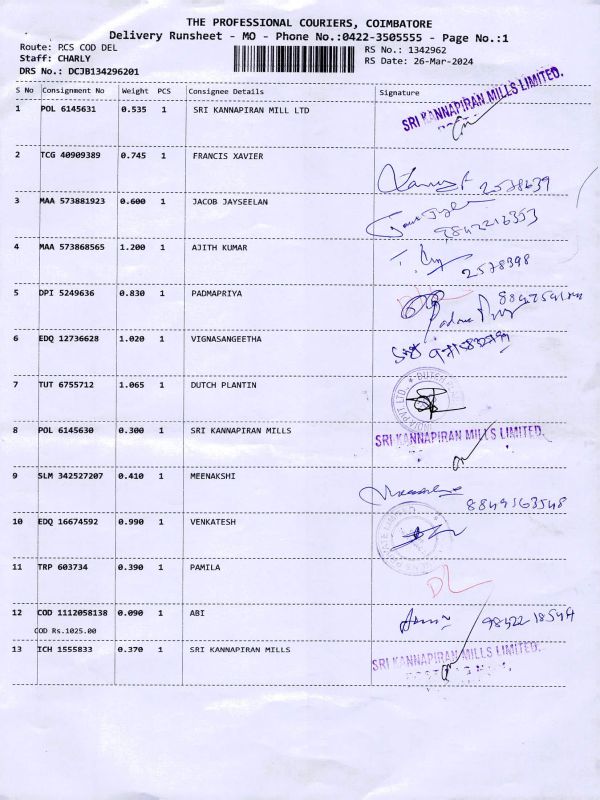 THE PROFESSIONAL COURIERS, COIMBATORE
Delivery Runsheet - MO - Phone No.:0422-3505555 - Page No.:1
Route: PCS COD DEL
RS No.: 1342962
Staff: CHARLY
RS Date: 26-Mar-2024
DRS No.: DCJB134296201
S No Consignment No Weight PCS Consignee Details Signature
1 POL 6145631 0.535 1 SRI KANNAPIRAN MILL LTD SRI KANNAPIRAN MILLS LIMITED.
2 TCG 40909389 0.745 1 FRANCIS XAVIER 2578639
3 MAA 573881923 0.600 1 JACOB JAYSEELAN 9842216353
4 MAA 573868565 1.200 1 AJITH KUMAR 2578398
5 DPI 5249636 0.830 1 PADMAPRIYA
6 EDQ 12736628 1.020 1 VIGNASANGEETHA
7 TUT 6755712 1.065 1 DUTCH PLANTIN
8 POL 6145630 0.300 1 SRI KANNAPIRAN MILLS SRI KANNAPIRAN MILLS LIMITED.
9 SLM 342527207 0.410 1 MEENAKSHI 8849563548
10 EDQ 16674592 0.990 1 VENKATESH
11 TRP 603734 0.390 1 PAMILA DL
12 COD 1112058138 0.090 1 ABI
COD Rs.1025.00
13 ICH 1555833 0.370 1 SRI KANNAPIRAN MILLS SRI KANNAPIRAN MILLS LIMITED.